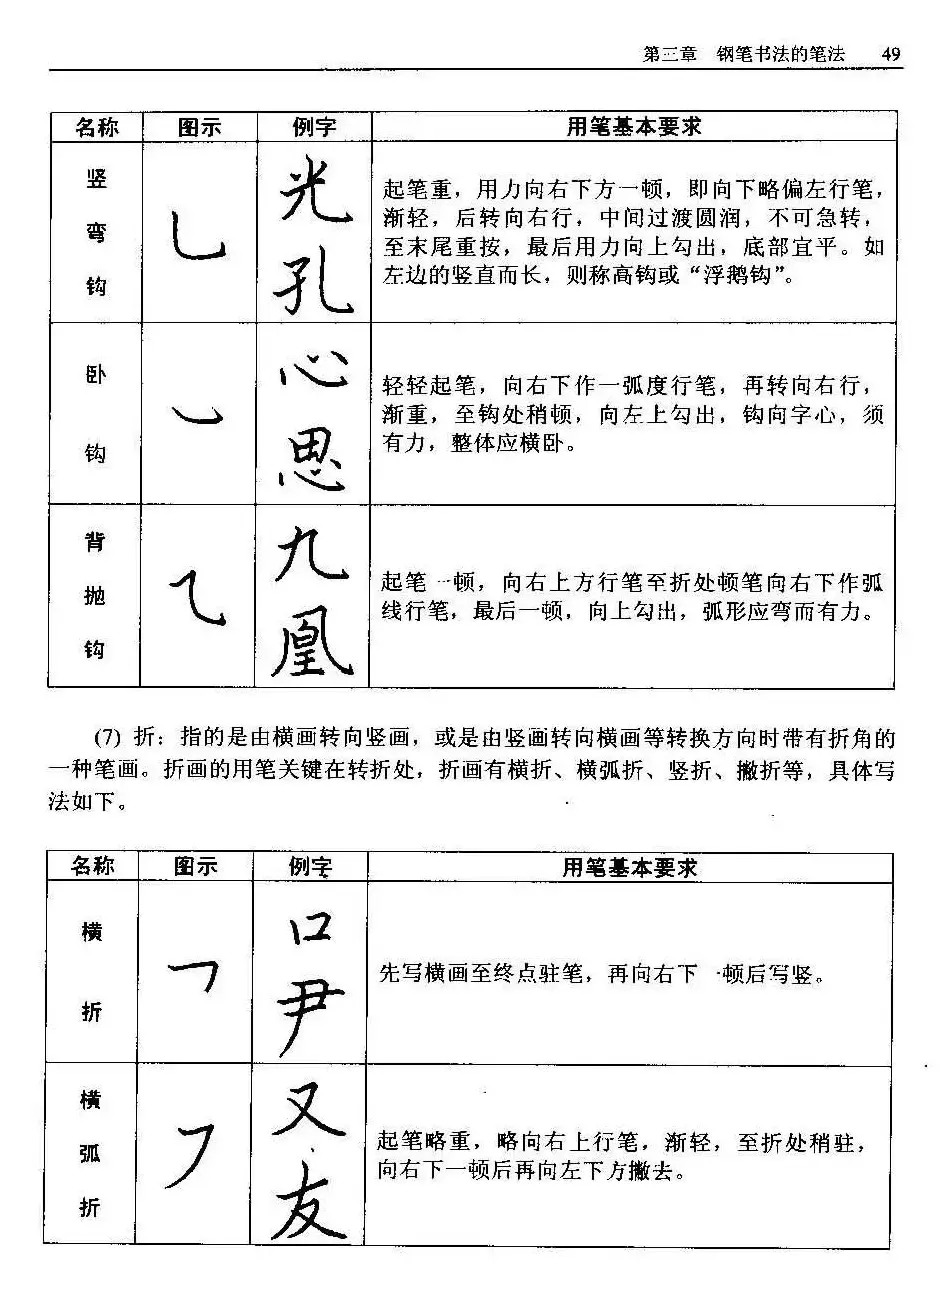 第三章 钢笔书法的笔法 49
名称 图示 例字 用笔基本要求
竖弯钩
光
孔
起笔重，用力向右下方一顿，即向下略偏左行笔，
渐轻，后转向右行，中间过渡圆润，不可急转，
至末尾重按，最后用力向上勾出，底部宜平。如
左边的竖直而长，则称高钩或“浮鹅钩”。
卧钩
心
思
轻轻起笔，向右下作一弧度行笔，再转向右行，
渐重，至钩处稍顿，向左上勾出，钩向字心，须
有力，整体应横卧。
背抛钩
九
凰
起笔一顿，向右上方行笔至折处顿笔向右下作弧
线行笔，最后一顿，向上勾出，弧形应弯而有力。
(7) 折：指的是由横画转向竖画，或是由竖画转向横画等转换方向时带有折角的
一种笔画。折画的用笔关键在转折处，折画有横折、横弧折、竖折、撇折等，具体写
法如下。
名称 图示 例字 用笔基本要求
横折
口
尹
先写横画至终点驻笔，再向右下一顿后写竖。
横弧折
又
友
起笔略重，略向右上行笔，渐轻，至折处稍驻，
向右下一顿后再向左下方撇去。